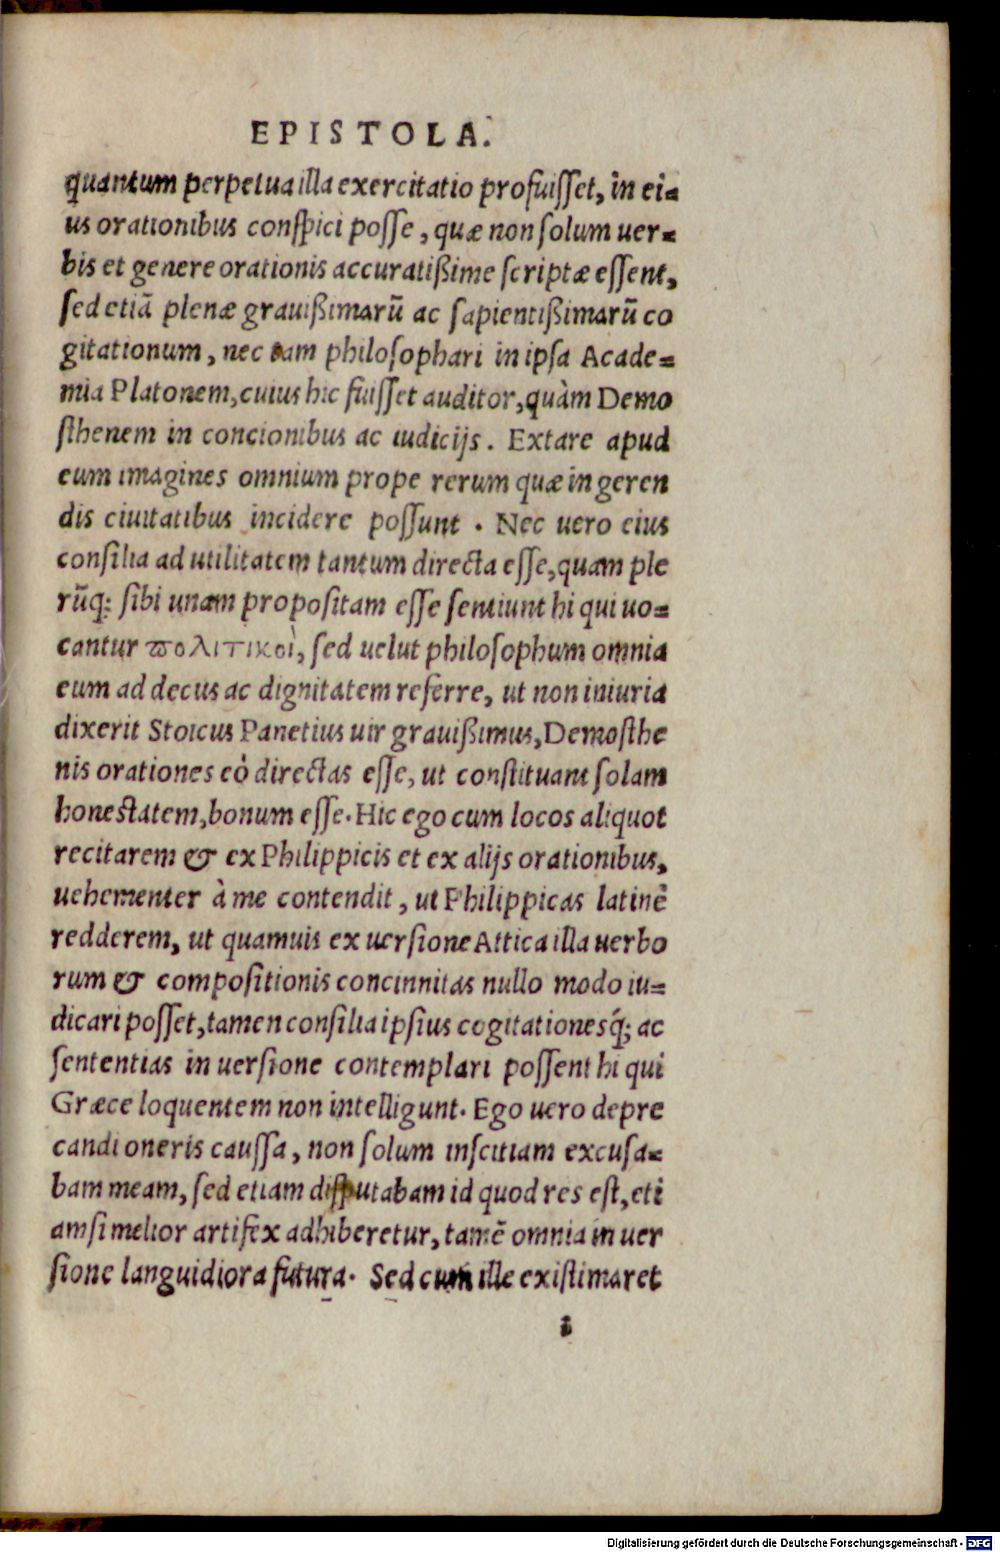 EPISTOLA.
quantum perpetua illa exercitatio profuisset, in ei=
us orationibus conspici posse, quæ non solum uer=
bis et genere orationis accuratißime scriptæ essent,
sed etiã plenæ grauißimarũ ac sapientißimarũ co
gitationum, nec tam philosophari in ipsa Acade=
mia Platonem, cuius hic fuisset auditor, quàm Demo
sthenem in concionibus ac iudicijs. Extare apud
eum imagines omnium prope rerum quæ in geren
dis ciuitatibus incidere possunt. Nec uero eius
consilia ad utilitatem tantum directa esse, quam ple
rũq; sibi unam propositam esse sentiunt hi qui uo=
cantur πολιτικοὶ, sed uelut philosophum omnia
eum ad decus ac dignitatem referre, ut non iniuria
dixerit Stoicus Panetius uir grauißimus, Demosthe
nis orationes eò directas esse, ut constituant solam
honestatem, bonum esse. Hic ego cum locos aliquot
recitarem & ex Philippicis et ex alijs orationibus,
uehementer à me contendit, ut Philippicas latinè
redderem, ut quamuis ex uersione Attica illa uerbo
rum & compositionis concinnitas nullo modo iu=
dicari posset, tamen consilia ipsius cogitationesq́; ac
sententias in uersione contemplari possent hi qui
Græce loquentem non intelligunt. Ego uero depre
candi oneris caussa, non solum inscitiam excusa=
bam meam, sed etiam disputabam id quod res est, eti
amsi melior artifex adhiberetur, tamẽ omnia in uer
sione languidiora futura. Sed cum ille existimaret
i
Digitalisierung gefördert durch die Deutsche Forschungsgemeinschaft - DFG